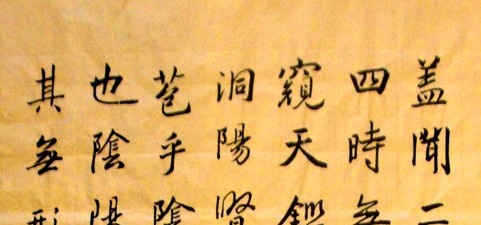 盖聞二
四時無
窺天鑑
洞陽賢
苞乎陰
也陰陽
其無形